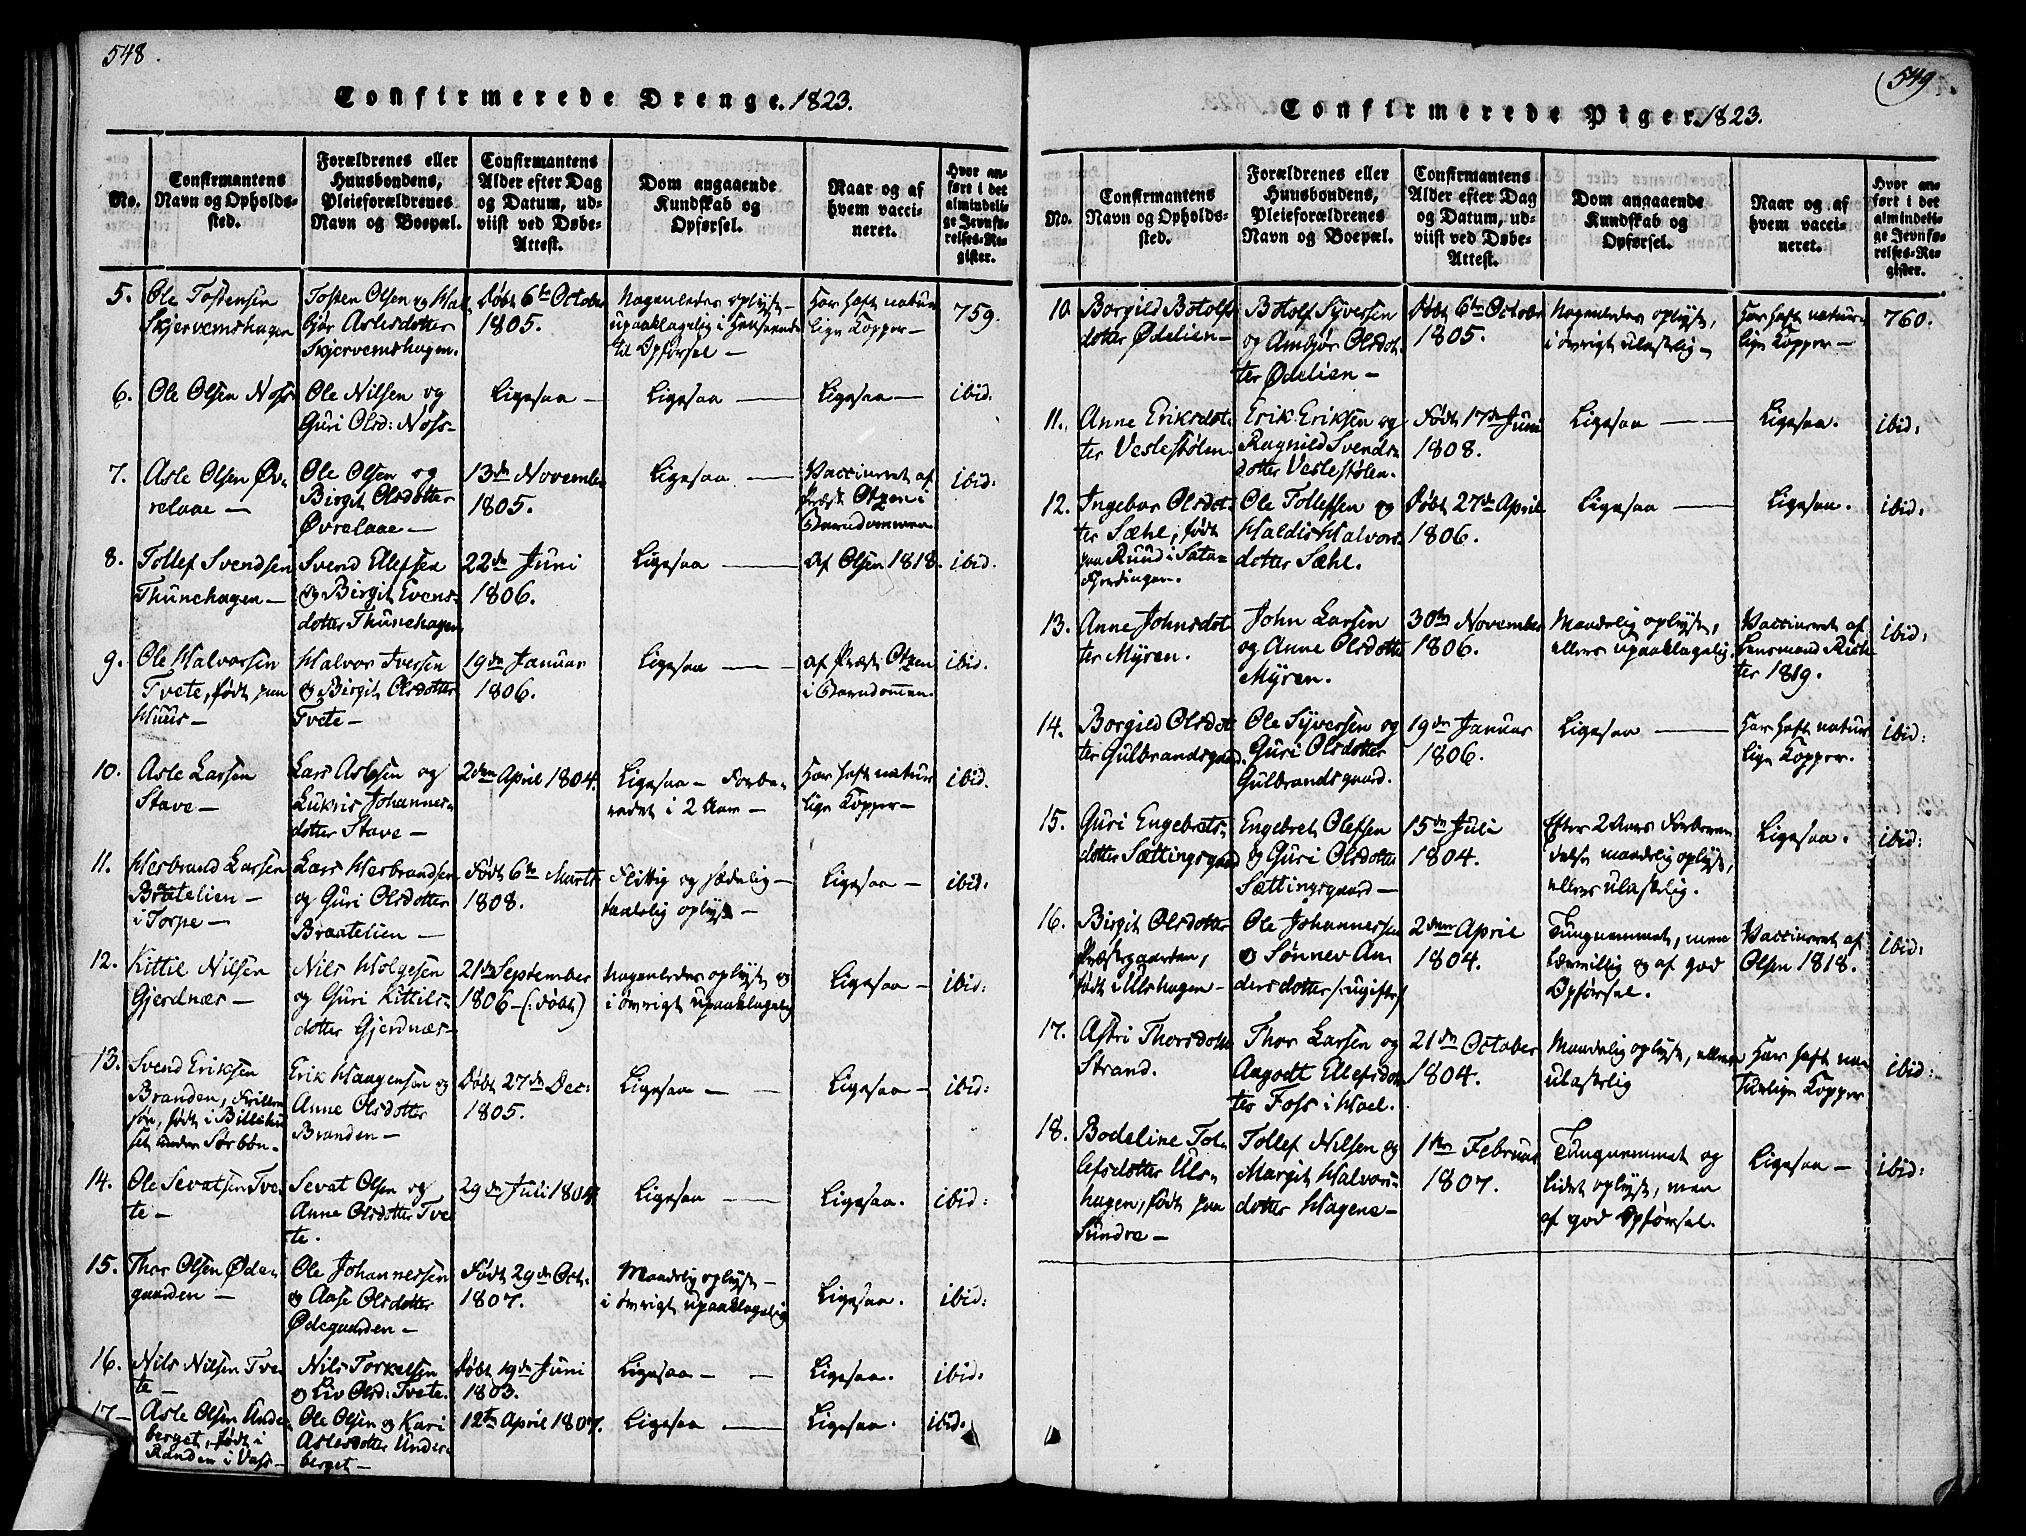 548.
Confirmerede Drenge. 1823.
No.
Confirmantens
Navn og Opholds-
sted.
Forældrenes eller
Huusbondens,
Pleieforældrenes
Navn og Boepæl.
Confirmantens
Alder efter Dag
og Datum, ud-
viist ved Døbe-
Attest.
Dom angaaende
Kundskab og
Opførsel.
Naar og af
hvem vacci-
neret.
Hvor an-
ført i det
almindeli-
ge Jevnfø-
relses-Re-
gister.
5.
Ole Tostensen
Skjervemshagen
Tosten Olsen og
bjør Aslesdotter
Skjervemshagen.
Døbt 6te October
1805.
Nogenledes oplyst -
upaaklagelig i Henseende
til Opførsel -
Har haft natur
lige Kopper -
759.
6.
Ole Olsen Noss
Ole Nilsen og
Guri Olsd: Noss-
Ligesaa -
Ligesaa -
Ligesaa -
ibid.
7.
Asle Olsen Øv-
relaae -
Ole Olsen og
Birgit Olsdotter
Øvrelaae -
13de November
1805.
Ligesaa -
Vaccineret af
Præst Otzen i
Barndommen
ibid:
8.
Tollef Svendsen
Thunehagen -
Svend Ellefsen
og Birgit Evens-
dotter Thunehagen
22de Juni
1806.
Ligesaa -
Af Olsen 1818.
ibid.
9.
Ole Halvorsen
Tvete, født paa
Huus -
Halvor Iversen
og Birgit Olsdotter
Tvete -
19de Januar
1806.
Ligesaa -
af Præst Otzen
i Barndommen.
ibid.
10.
Asle Larsen
Stave -
Lars Aslesen og
Lukris Johannes-
dotter Stave -
2den April 1804.
Ligesaa - Forbe-
redet i 2 Aar -
Har haft natur
lige Kopper -
ibid.
11.
Herbrand Larsen
Braatelien -
i Torpe -
Lars Herbrandsen
og Guri Olsdotter
Braatelien -
Født 6te Marts
1808.
Flittig og sædelig -
taalelig oplyst -
Ligesaa -
ibid:
12.
Kittil Nilsen
Gjerdnæs -
Nils Holgesen
og Guri Kittils-
dotter Gjerdnæs-
21de September
1806 - (:døbt)
Nogenledes oplyst og
i øvrigt upaaklagelig
Ligesaa -
ibid:
13.
Svend Eriksen
Branden,
søn, født i
set under Sørbøn -
Erik Haagensen og
Anne Olsdotter
Branden -
Døbt 27de Dec:
1805.
Ligesaa -
Ligesaa -
ibid:
14.
Ole Sevatsen Tve-
te -
Sevat Olsen og
Anne Olsdotter Tve
te.
29de Juli 1804.
Ligesaa -
Ligesaa.
ibid:
15.
Thor Olsen Øde-
gaarden -
Ole Johannessen
og Aase Olsdotter
Ødegaarden -
Født 29de Oct:
1807.
Maadelig oplyst -
i øvrigt upaaklagelig
Ligesaa.
ibid:
16.
Nils Nilsen Tve-
te -
Nils Torkelsen
og Liv Olsd: Tvete.
Døbt 19de Juni
1803.
Ligesaa -
Ligesaa.
ibid:
17 -
Asle Olsen Under
berget, født i
Randen i Vass -
Ole Olsen og Kari
Aslesdotter Under-
berget -
12te April 1807.
Ligesaa -
Ligesaa.
ibid.
549.
Confirmerede Piger 1823.
No.
Confirmantens
Navn og Opholds-
sted.
Forældrenes eller
Huusbondens,
Pleieforældrenes
Navn og Boepæl.
Confirmantens
Alder efter Dag
og Datum, ud-
viist ved Døbe-
Attest.
Dom angaaende
Kundskab og
Opførsel.
Naar og af
hvem vacci-
neret.
Hvor an-
ført i det
almindeli-
ge Jevnfø-
relses-Re-
gister.
10.
Borgild Botolfs
dotter Ødelien -
Botolf Syversen
og Ambjør Olsdot-
ter Ødelien -
Døbt 6te October
1805.
Nogenledes oplyst,
i øvrigt ulastelig -
Har haft natur-
lige Kopper -
760.
11.
Anne Eriksdot-
ter Veslestølen.
Erik Eriksen og
Ragnild Svends-
dotter Veslestølen.
Født 17de Juni
1808.
Ligesaa -
Ligesaa.
ibid:
12.
Ingebor Olsdot-
ter Sæhle, født
paa Ruud i
Ole Tollefsen og
Haldis Halvors
dotter Sæhle.
Døbt 27de April
1806.
Ligesaa -
Ligesaa.
ibid:
13.
Anne Johnsdot-
ter Myren.
John Larsen
og Anne Olsdotter
Myren.
30te November
1806.
Maadelig oplyst,
ellers upaaklagelig.
Vaccineret af
Lensmand Rich-
ter 1819.
ibid:
14.
Borgild Olsdot
ter Gulbrandsgaard.
Ole Syversen og
Guri Olsdotter
Gulbrandsgaard.
19de Januar
1806.
Ligesaa -
Har haft natur
lige Kopper.
ibid:
15.
Guri Engebrets-
dotter Sættingsgaard
Engebret Olefsen
og Guri Olsdotter
Sættingsgaard -
15de Juli
1804.
Efter 2 Aars Forbere-
delse maadelig oplyst,
ellers ulastelig.
Ligesaa.
ibid:
16.
Birgit Olsdotter
Præstegaarden,
født i Ulshagen -
Ole Johannessen
og Sønnev An
dersdotter /: ugifte /
2den April
1804.
Tungnemmet, men
lærvillig og af god
Opførsel.
Vaccineret af
Olsen 1818.
ibid:
17.
Astri Thorsdotter
Strand.
Thor Larsen og
Aagodt Ellefsdot-
ter Foss i Hael.
21de October
1804.
Maadelig oplyst, ellers
ulastelig
Har haft na-
turlige Kopper
ibid:
18.
Bodeline Tol-
lefsdotter Uls-
hagen, født paa
Sundre -
Tollef Nilsen og
Margit Halvors-
dotter Hagene -
1ste Februar
1807.
Tungnemmet og
lidet oplyst, men
af god Opførsel.
Ligesaa -
ibid: